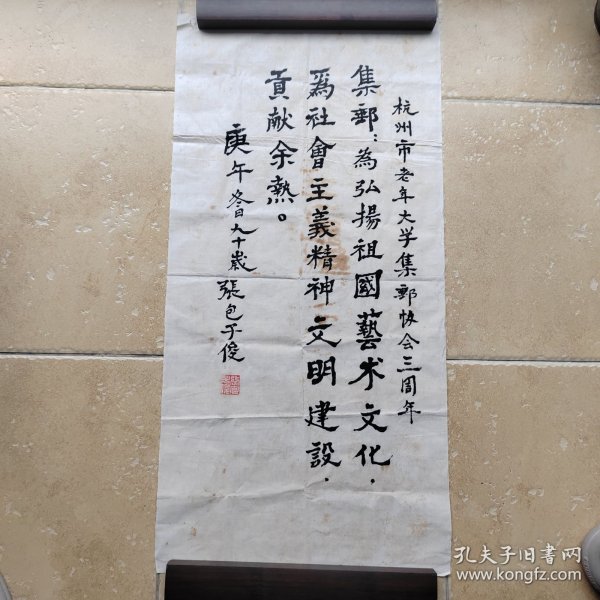 杭州市老年大学集郵协会三周年
集郵：為弘揚祖國藝术文化，
爲社會主義精神文明建設，
貢献余熱。
庚午冬日九十歲張包子俊
孔夫子旧书网
www.kongfz.com